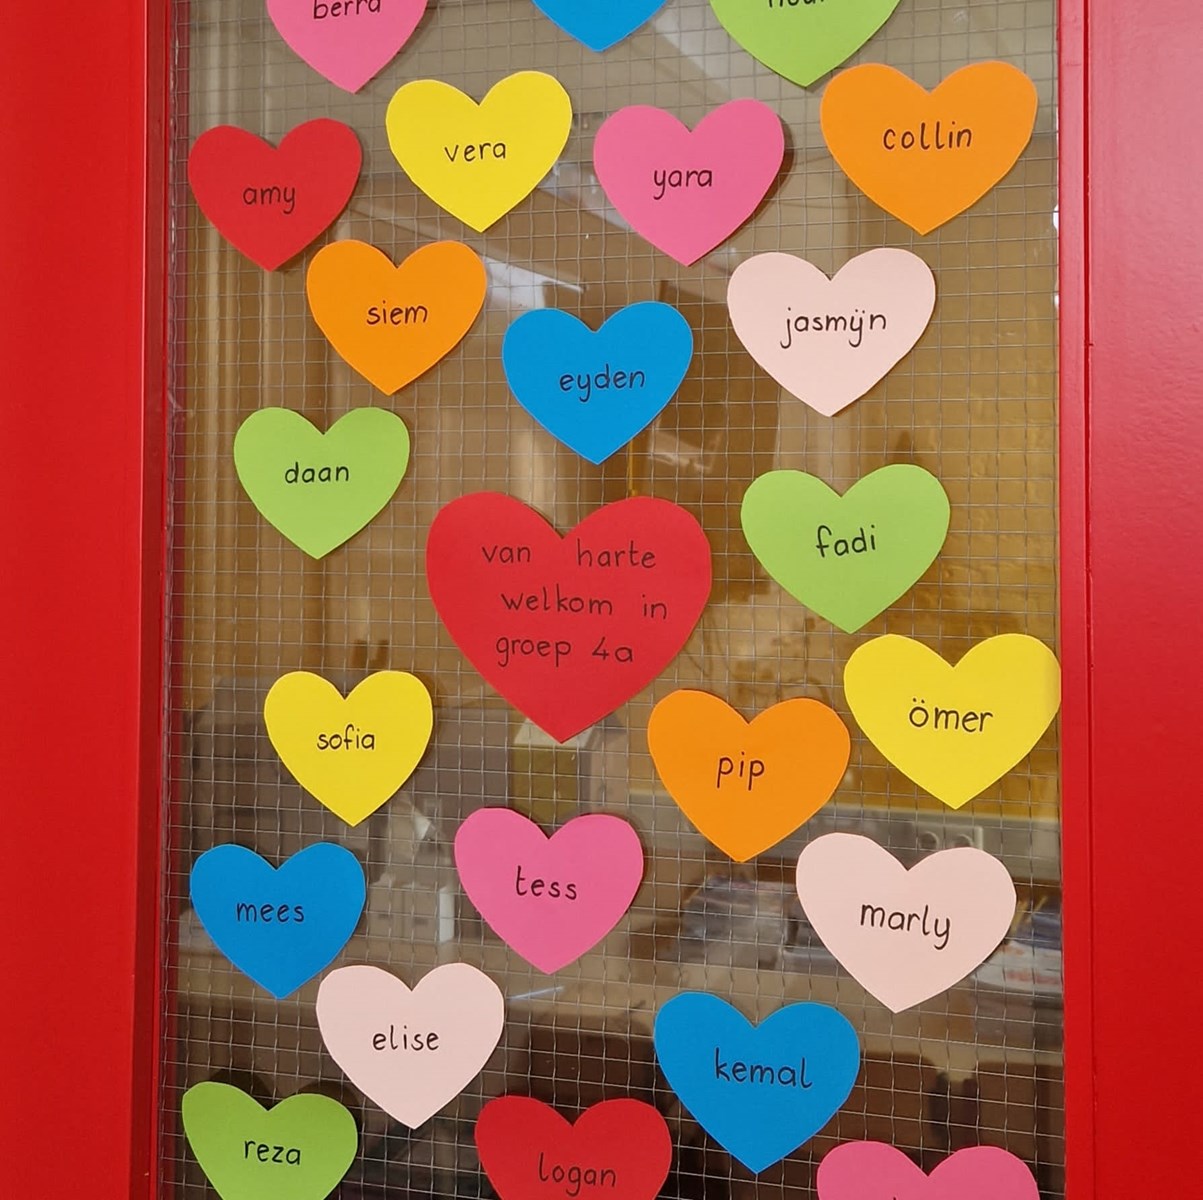 berra
nour
vera
collin
yara
amy
siem
jasmijn
eyden
daan
fadi
van harte
welkom in
groep 4a
ömer
sofia
pip
tess
mees
marly
elise
kemal
reza
logan